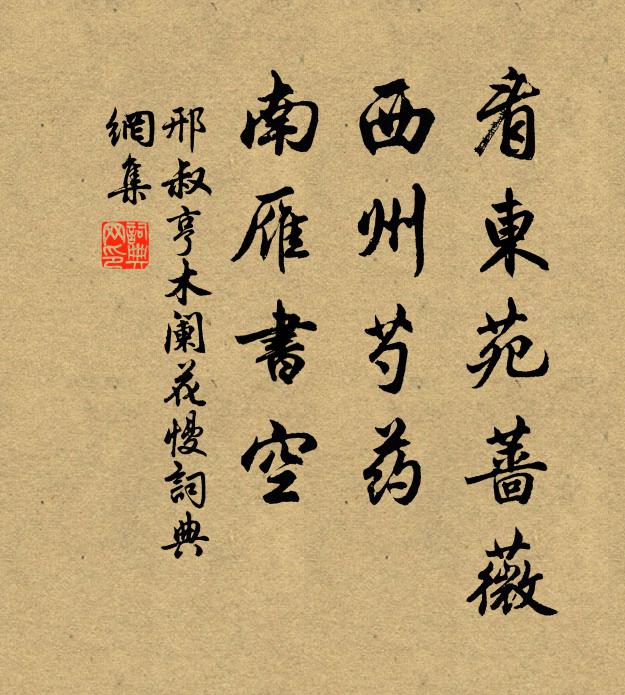 看東苑蔷薇
西州芍药
南雁書空
邢叔亨木阑花慢詞典
網集
詞典
网印